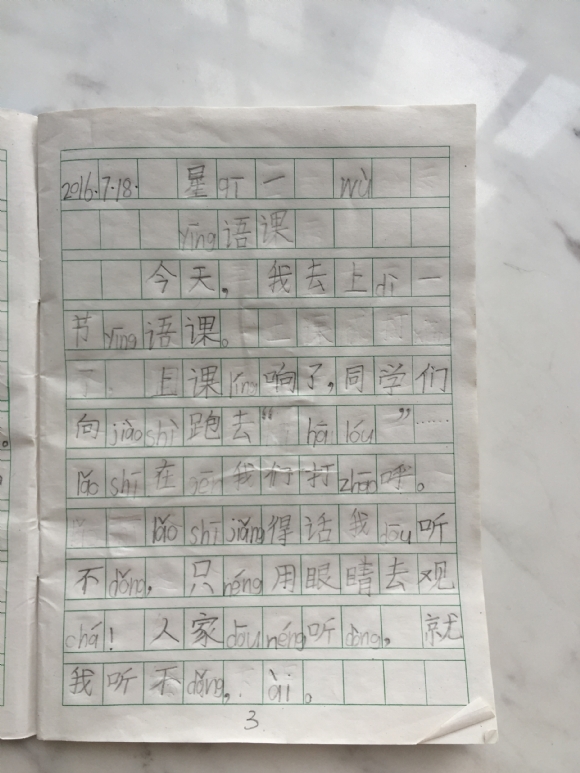 2016.7.18. 星qī一 wù
yīng语课
今天，我去上dì一
节yīng语课。
上课líng响了，同学们
向jiào shì跑去“hāi lóu”……
lǎo shī在gěi我们打zhāo呼。
lǎo shī jiǎng得话我dōu听
不dǒng，只néng用眼睛去观
chá！人家dōu néng听dǒng，就
我听不dǒng，ài。
3